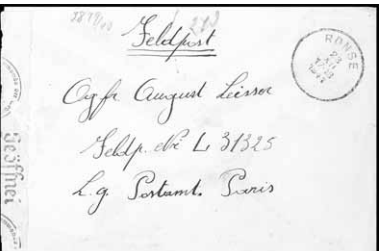 Feldpost
RONSE
Ogfr August Leisser
Feldp. Nr L 31325
L.g. Postamt. Paris
Geöffnet